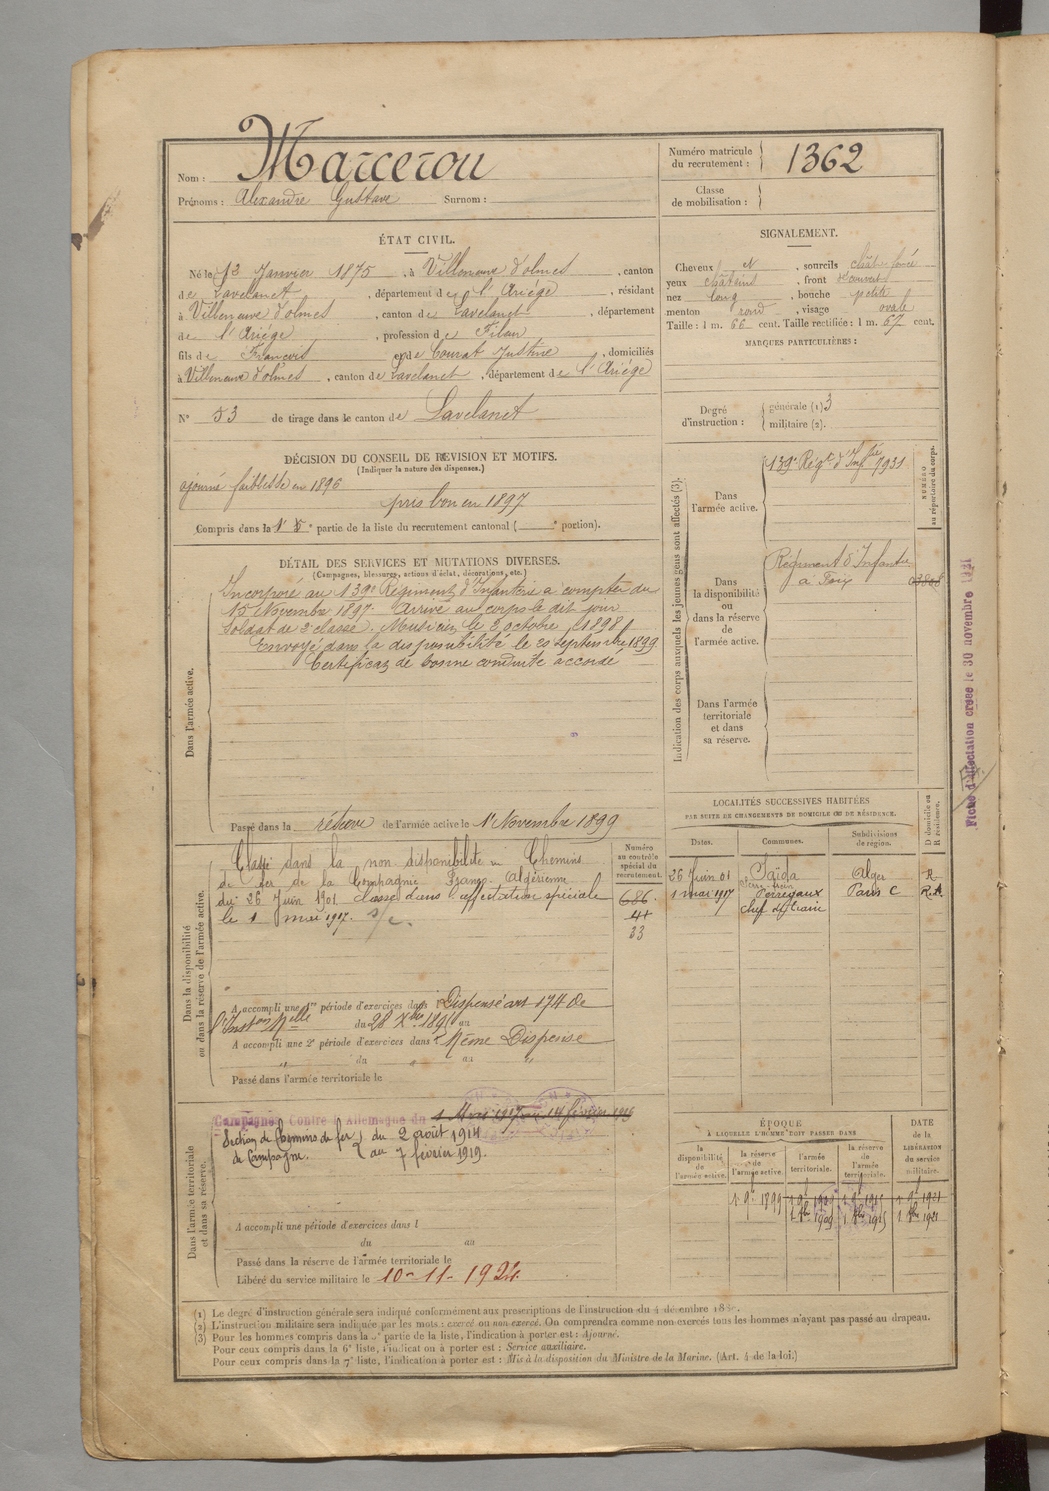 Nom : Marcerou
Prénoms : Alexandre Gustave Surnom :
Numéro matricule du recrutement : 1362
Classe de mobilisation :
ÉTAT CIVIL.
Né le 12 Janvier 1875, à Villeneuve d'olmes, canton
de Lavelanet, département de l'Ariége, résidant
à Villeneuve d'olmes, canton de Lavelanet, département
de l'Ariége, profession de Fileur
fils de François et de Courat Justine, domiciliés
à Villeneuve d'olmes, canton de Lavelanet, département de l'Ariége
N° 53 de tirage dans le canton de Lavelanet
SIGNALEMENT.
Cheveux et, sourcils chât. foncé
yeux châtains, front découvert
nez long, bouche petite
menton rond, visage ovale
Taille : 1 m. 66 cent. Taille rectifiée : 1 m. 67 cent.
MARQUES PARTICULIÈRES :
Degré d'instruction : générale (1) 3
militaire (2).
DÉCISION DU CONSEIL DE REVISION ET MOTIFS.
(Indiquer la nature des dispenses.)
ajourné faiblesse en 1896
pris bon en 1897
Compris dans la partie de la liste du recrutement cantonal ( portion).
DÉTAIL DES SERVICES ET MUTATIONS DIVERSES.
(Campagnes, blessures, actions d'éclat, décorations, etc.)
Dans l'armée active.
Incorporé au 139e Régiment d'Infanterie à compter du
15 Novembre 1897. Arrivé au corps le dit jour
Soldat de 2e classe. Musicien le 8 octobre 1898
Envoyé dans la disponibilité le 20 septembre 1899
Certificat de bonne conduite accordé
Passé dans la réserve de l'armée active le 1er Novembre 1899
Indication des corps auxquels les jeunes gens sont affectés (3).
NUMÉRO au répertoire du corps.
Dans l'armée active.
139e Régt d'Infie 7931
Dans la disponibilité ou dans la réserve de l'armée active.
Régiment d'Infanterie
à Foix
Dans l'armée territoriale et dans sa réserve.
Fiche d'affectation créée le 30 novembre 1921
LOCALITÉS SUCCESSIVES HABITÉES
PAR SUITE DE CHANGEMENTS DE DOMICILE OU DE RÉSIDENCE.
Dates. Communes. Subdivisions de région. D domicile ou R résidence.
26 Juin 01 Saïda Alger R
1 mai 1917 Perregaux Paris C R.A
Dans la disponibilité ou dans la réserve de l'armée active.
Numéro au contrôle spécial du recrutement.
Classé dans la non disponibilité Chemins
de fer de la Compagnie Franco Algérienne
du 26 Juin 1901 classé dans l'affectation spéciale
le 1 mai 1917. s/c.
686
41
33
A accompli une 1re période d'exercices dans Dispensé art 174 de
l'Inston Melle du 28 Xbre 1895 au
A accompli une 2e période d'exercices dans Même Dispense
" du " au "
Passé dans l'armée territoriale le
Dans l'armée territoriale et dans sa réserve.
Campagnes Contre l'Allemagne du 1 Mai 1917 au 14 février 1919
Section de Chemins de fer de Campagne. du 2 août 1914
au 7 février 1919.
A accompli une période d'exercices dans l
du au
Passé dans la réserve de l'armée territoriale le
Libéré du service militaire le 10-11-1924.
ÉPOQUE
À LAQUELLE L'HOMME DOIT PASSER DANS
la disponibilité de l'armée active.
la réserve de l'armée active.
l'armée territoriale.
la réserve de l'armée territoriale.
DATE de la LIBÉRATION du service militaire.
(1) Le degré d'instruction générale sera indiqué conformément aux prescriptions de l'instruction du 4 décembre
(2) L'instruction militaire sera indiquée par les mots : exercé ou non exercé. On comprendra comme non exercés tous les hommes n'ayant pas passé au drapeau.
(3) Pour les hommes compris dans la partie de la liste, l'indication à porter est : Ajourné.
Pour ceux compris dans la 6e liste, l'indication à porter est : Service auxiliaire.
Pour ceux compris dans la 7e liste, l'indication à porter est : Mis à la disposition du Ministre de la Marine. (Art. 4 de la loi.)